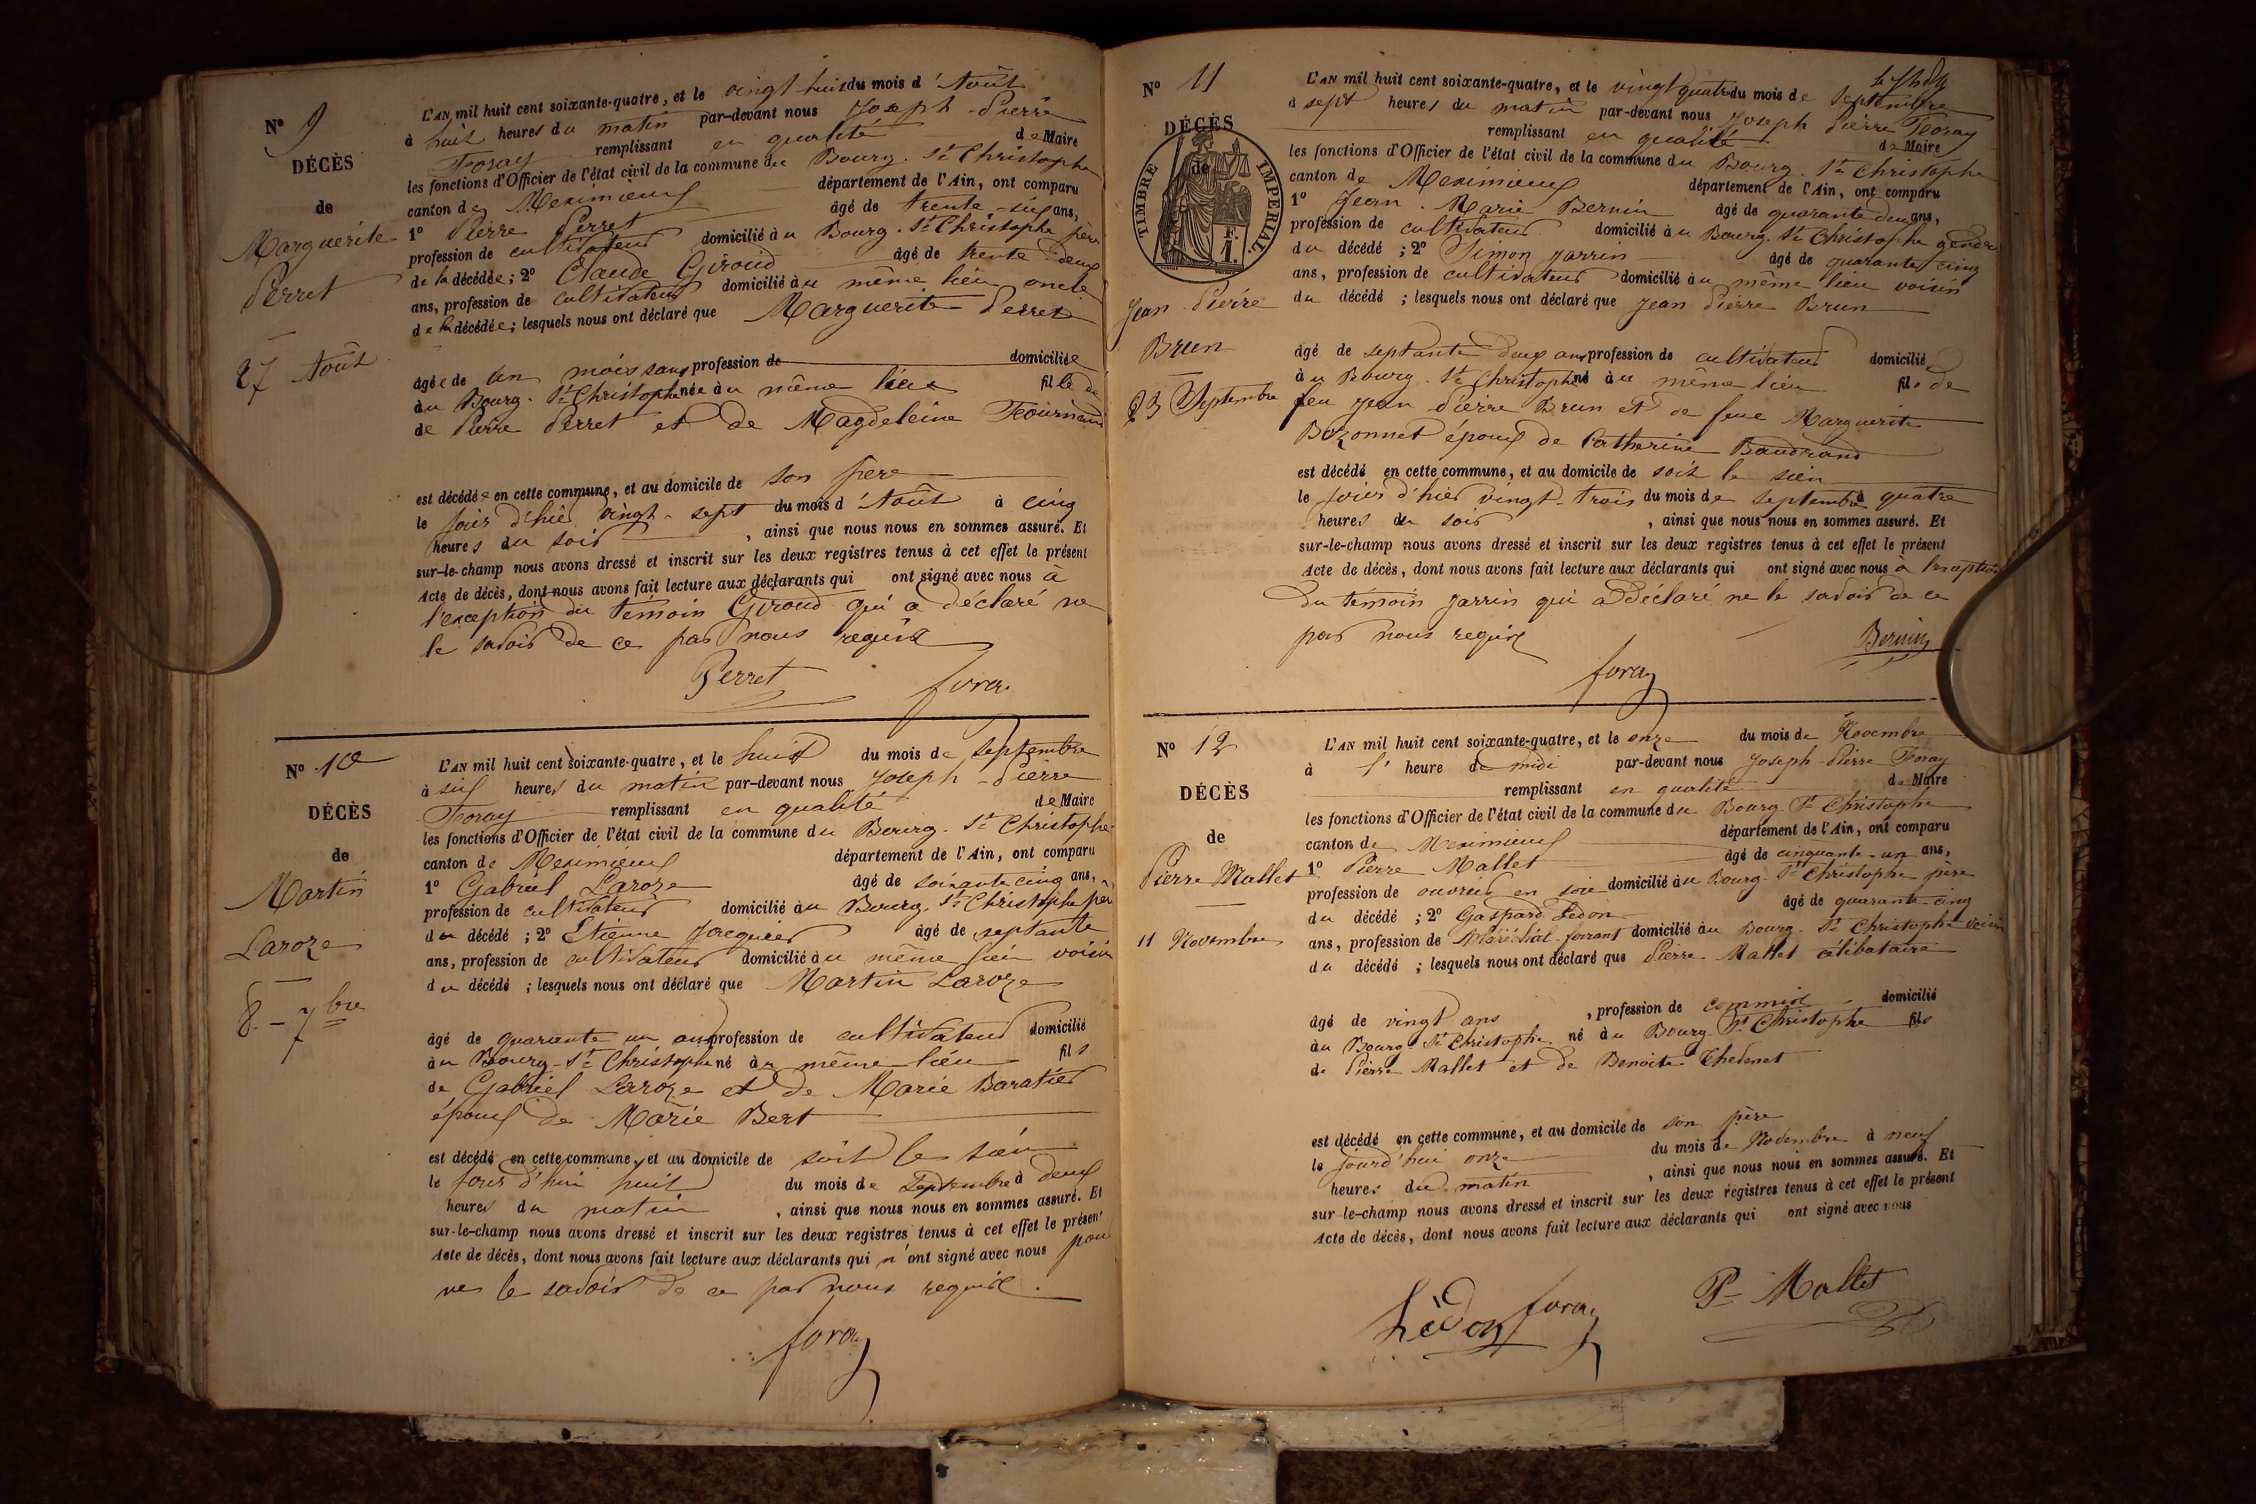 Nº 9
DÉCÈS
de
Marguerite
Perret
27 Août
L'AN mil huit cent soixante-quatre, et le vingt-huit du mois d'Août
à huit heures du matin par-devant nous Joseph-Pierre
Foray remplissant en qualité de Maire
les fonctions d'Officier de l'état civil de la commune du Bourg-St Christophe
canton de Meximieux département de l'Ain, ont comparu
1º Pierre Perret âgé de trente-six ans,
profession de cultivateur domicilié au Bourg-St Christophe père
de la décédée ; 2º Claude Giroud âgé de trente deux
ans, profession de cultivateur domicilié au même lieu oncle
de la décédée ; lesquels nous ont déclaré que Marguerite Perret
âgée de un mois sans profession de domiciliée
au Bourg-St Christophe née au même lieu fille de
de Pierre Perret et de Magdeleine Fournand
est décédée en cette commune, et au domicile de son père
le jour d'hier vingt-sept du mois d'Août à cinq
heures du soir, ainsi que nous nous en sommes assuré. Et
sur-le-champ nous avons dressé et inscrit sur les deux registres tenus à cet effet le présent
Acte de décès, dont nous avons fait lecture aux déclarants qui ont signé avec nous à
l'exception du témoin Giroud qui a déclaré ne
le savoir de ce par nous requis
Perret Foray
Nº 10
DÉCÈS
de
Martin
Laroze
8 - 7bre
L'AN mil huit cent soixante-quatre, et le huit du mois de Septembre
à six heures du matin par-devant nous Joseph-Pierre
Foray remplissant en qualité de Maire
les fonctions d'Officier de l'état civil de la commune du Bourg-St Christophe
canton de Meximieux département de l'Ain, ont comparu
1º Gabriel Laroze âgé de soixante cinq ans,
profession de cultivateur domicilié au Bourg-St Christophe père
du décédé ; 2º Etienne Jacquier âgé de septante
ans, profession de cultivateur domicilié au même lieu voisin
du décédé ; lesquels nous ont déclaré que Martin Laroze
âgé de quarante un ans profession de cultivateur domicilié
au Bourg-St Christophe né au même lieu fils
de Gabriel Laroze et de Marie Baratier
époux de Marie Bert
est décédé en cette commune, et au domicile de soit le sien
le jour d'hui huit du mois de Septembre à deux
heures du matin, ainsi que nous nous en sommes assuré. Et
sur-le-champ nous avons dressé et inscrit sur les deux registres tenus à cet effet le présent
Acte de décès, dont nous avons fait lecture aux déclarants qui n'ont signé avec nous pour
ne le savoir de ce par nous requis.
Foray
Nº 11
DÉCÈS
de
TIMBRE IMPERIAL
F.
1.
Jean Pierre
Brun
23 Septembre
L'AN mil huit cent soixante-quatre, et le vingt quatre du mois de Septembre
à sept heures du matin par-devant nous Joseph Pierre Foray
remplissant en qualité de Maire
les fonctions d'Officier de l'état civil de la commune du Bourg-St Christophe
canton de Meximieux département de l'Ain, ont comparu
1º Jean-Marie Bernin âgé de quarante deux ans,
profession de cultivateur domicilié au Bourg-St Christophe gendre
du décédé ; 2º Simon Jarrin âgé de quarante cinq
ans, profession de cultivateur domicilié au même lieu voisin
du décédé ; lesquels nous ont déclaré que Jean Pierre Brun
âgé de septante deux ans profession de cultivateur domicilié
au Bourg-St Christophe né au même lieu fils de
feu Jean Pierre Brun et de feue Marguerite
Bozonnet époux de Catherine Baudrand
est décédé en cette commune, et au domicile de soit le sien
le jour d'hier vingt-trois du mois de Septembre à quatre
heures du soir, ainsi que nous nous en sommes assuré. Et
sur-le-champ nous avons dressé et inscrit sur les deux registres tenus à cet effet le présent
Acte de décès, dont nous avons fait lecture aux déclarants qui ont signé avec nous à l'exception
du témoin Jarrin qui a déclaré ne le savoir de ce
par nous requis
Bernin
Foray
Nº 12
DÉCÈS
de
Pierre Mallet
11 Novembre
L'AN mil huit cent soixante-quatre, et le onze du mois de Novembre
à l' heure de midi par-devant nous Joseph-Pierre Foray
remplissant en qualité de Maire
les fonctions d'Officier de l'état civil de la commune du Bourg St Christophe
canton de Meximieux département de l'Ain, ont comparu
1º Pierre Mallet âgé de cinquante-un ans,
profession de ouvrier en soie domicilié au Bourg-St Christophe père
du décédé ; 2º Gaspard Lédon âgé de quarante cinq
ans, profession de Maréchal-ferrant domicilié au Bourg-St Christophe voisin
du décédé ; lesquels nous ont déclaré que Pierre Mallet célibataire
âgé de vingt ans, profession de commis domicilié
au Bourg St Christophe né au Bourg-St Christophe fils
de Pierre Mallet et de Benoite Thedenet
est décédé en cette commune, et au domicile de son père
le jourd'hui onze du mois de Novembre à neuf
heures du matin, ainsi que nous nous en sommes assuré. Et
sur-le-champ nous avons dressé et inscrit sur les deux registres tenus à cet effet le présent
Acte de décès, dont nous avons fait lecture aux déclarants qui ont signé avec nous
Lédon Foray Pre Mallet